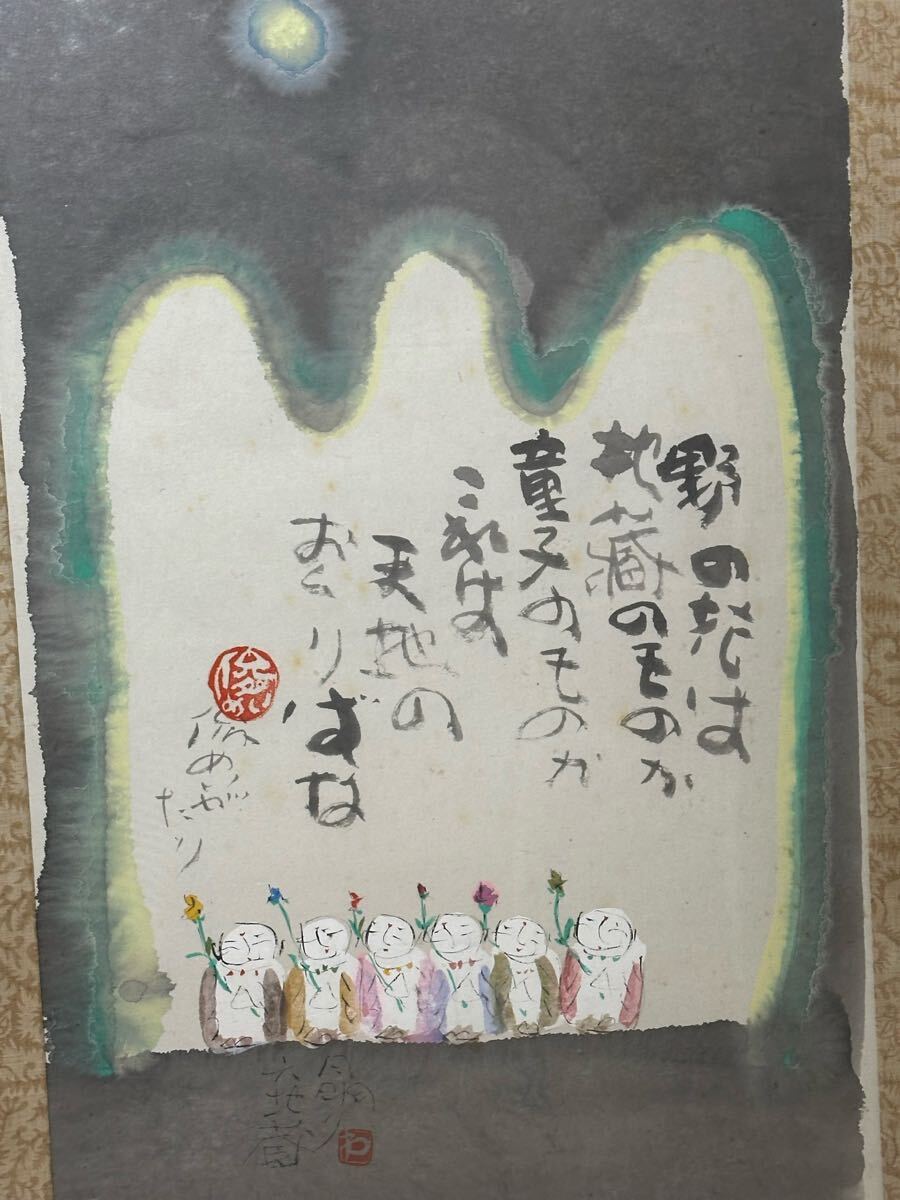 野の花は
地蔵のものか
童子のものか
これは
天地の
おくりばな
めぐ
たり
六地蔵